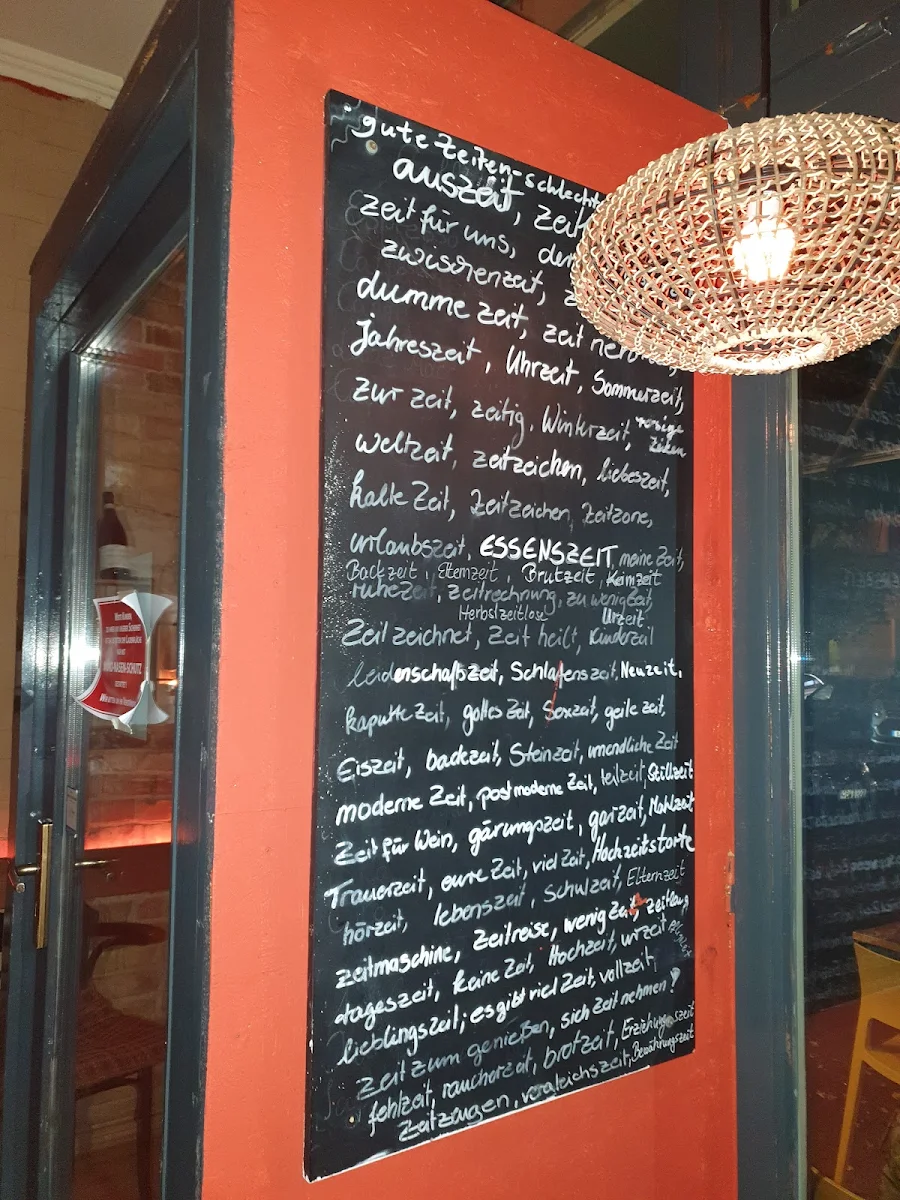 gute Zeiten-schlechte
auszeit, zeit
zeit für uns,
zwischenzeit,
dumme zeit, zeit
Jahreszeit, Uhrzeit, Sommerzeit,
zur zeit, zeitig, Winterzeit,
weltzeit, zeitzeichen, liebeszeit,
kalte Zeit, Zeitzeichen, Zeitzone,
urlaubszeit, ESSENSZEIT, meine Zeit,
Backzeit, Elternzeit, Brutzeit, Keimzeit
ruheZeit, zeitrechnung, zu wenig Zeit,
Herbstzeitlose Urzeit,
Zeit zeichnet, Zeit heilt, Kinderzeit
leidenschaftszeit, Schlafenszeit, Neuzeit,
kaputte Zeit, gottes Zeit, Sexzeit, geile zeit,
Eiszeit, badezeit, Steinzeit, unendliche Zeit
moderne Zeit, postmoderne Zeit, teilzeit, Stillzeit
Zeit für Wein, gärungszeit, garzeit, Mahlzeit
Trauerzeit, eure Zeit, viel Zeit, Hochzeitstorte
hörzeit, lebenszeit, Schulzeit, Elternzeit
zeitmaschine, Zeitreise, wenig Zeit, zeitlang
tageszeit, keine Zeit, Hochzeit, urzeit
lieblingszeit; es gibt viel Zeit, vollzeit,
zeit zum genießen, sich Zeit nehmen!
fehlzeit, raucherzeit, brotzeit, Erziehungszeit
Zeitzeugen, vergleichszeit, Bewährungszeit